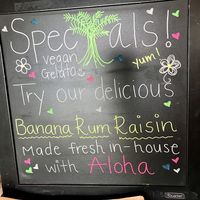 Specials!
vegan
Gelato
yum!
Try our delicious
Banana Rum Raisin
Made fresh in-house
with Aloha